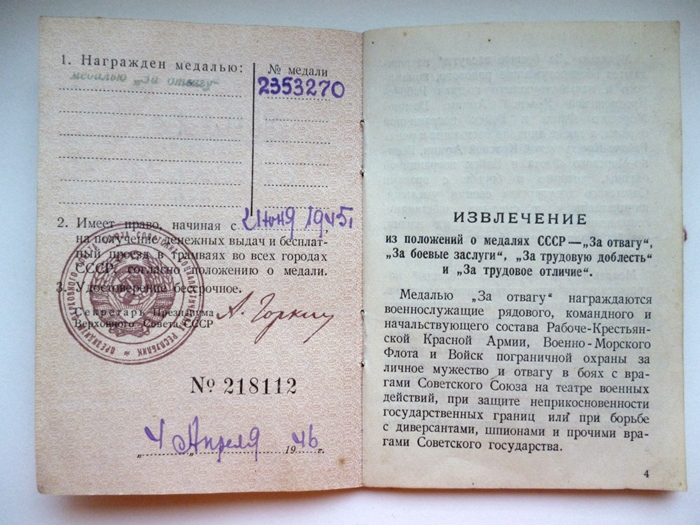 1. Награжден медалью:
медалью „За отвагу"
№ медали
2353270
2. Имеет право, начиная с 2 июня 1945 г.
на получение денежных выдач и бесплат-
ный проезд в трамваях во всех городах
СССР, согласно положению о медали.
3. Удостоверение бессрочное.
Секретарь Президиума
Верховного Совета СССР
А. Горкин
№ 218112
„4" Апреля 1946 г.
ИЗВЛЕЧЕНИЕ
из положений о медалях СССР—„За отвагу“,
„За боевые заслуги“, „За трудовую доблесть“
и „За трудовое отличие“.
Медалью „За отвагу“ награждаются
военнослужащие рядового, командного и
начальствующего состава Рабоче-Крестьян-
ской Красной Армии, Военно-Морского
Флота и Войск пограничной охраны за
личное мужество и отвагу в боях с вра-
гами Советского Союза на театре военных
действий, при защите неприкосновенности
государственных границ или при борьбе
с диверсантами, шпионами и прочими вра-
гами Советского государства.
4